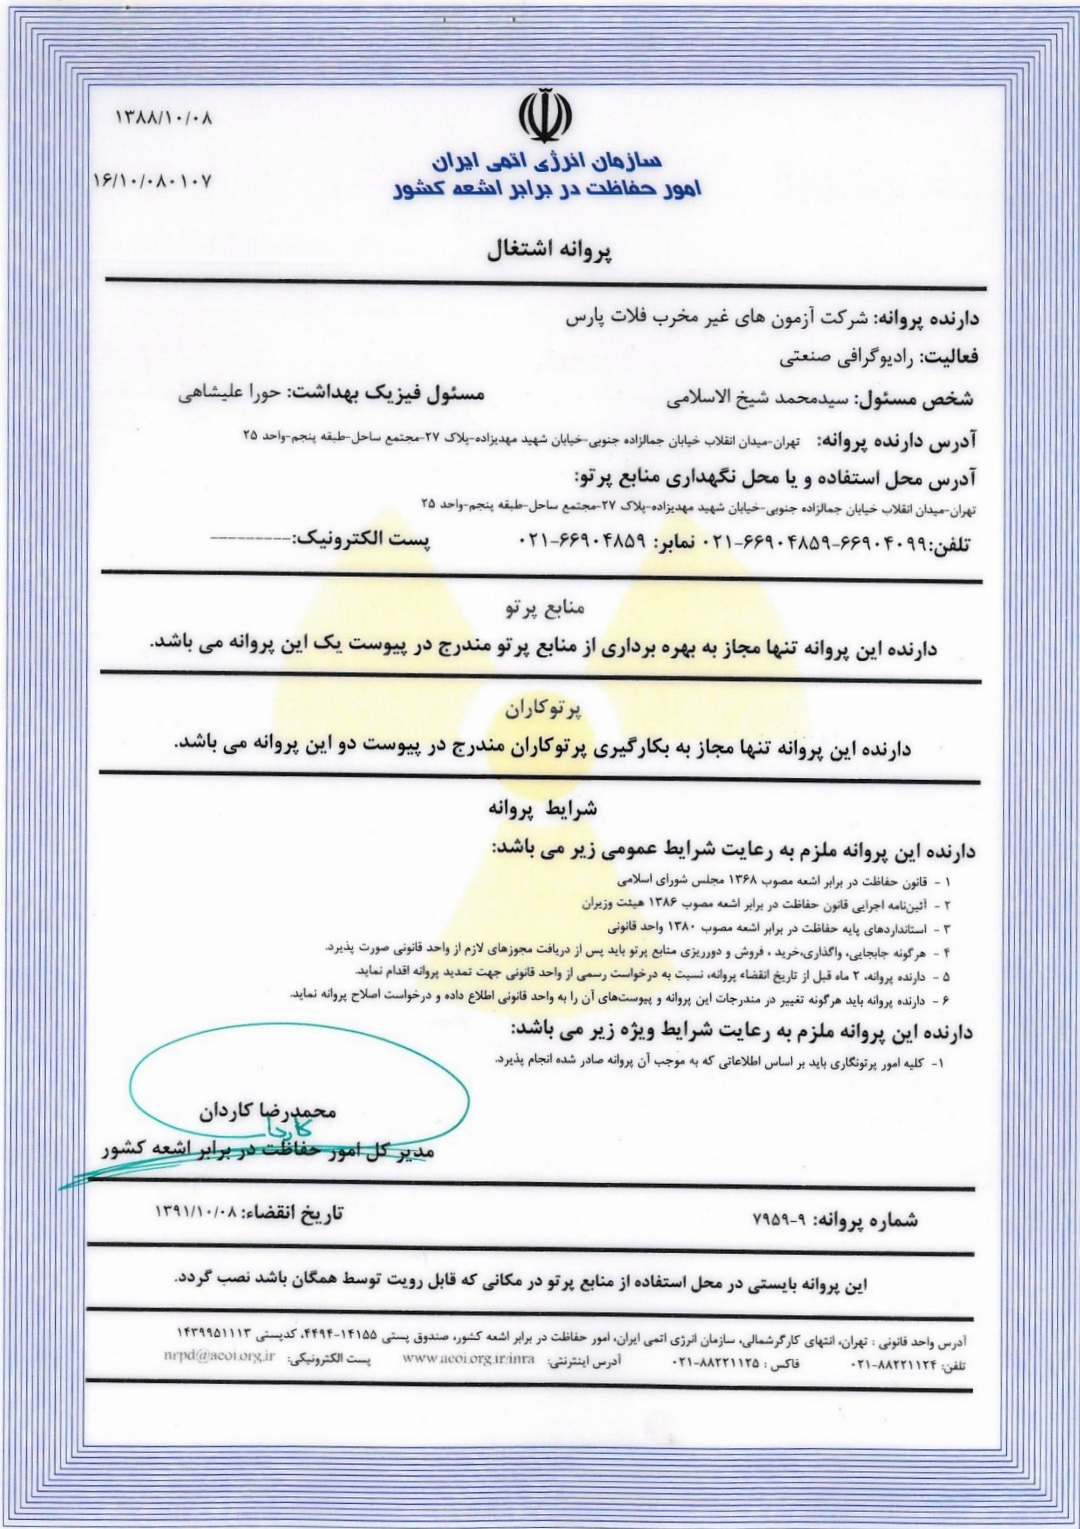 ۱۳۸۸/۱۰/۰۸
۱۶/۱۰/۰۸۰۱۰۷
سازمان انرژی اتمی ایران
امور حفاظت در برابر اشعه کشور
پروانه اشتغال
دارنده پروانه: شرکت آزمون های غیر مخرب فلات پارس
فعالیت: رادیوگرافی صنعتی
شخص مسئول: سیدمحمد شیخ الاسلامی مسئول فیزیک بهداشت: حورا علیشاهی
آدرس دارنده پروانه: تهران-میدان انقلاب خیابان جمالزاده جنوبی-خیابان شهید مهدیزاده-پلاک ۲۷-مجتمع ساحل-طبقه پنجم-واحد ۲۵
آدرس محل استفاده و یا محل نگهداری منابع پرتو:
تهران-میدان انقلاب خیابان جمالزاده جنوبی-خیابان شهید مهدیزاده-پلاک ۲۷-مجتمع ساحل-طبقه پنجم-واحد ۲۵
تلفن:۶۶۹۰۴۰۹۹-۶۶۹۰۴۸۵۹-۰۲۱ نمابر: ۶۶۹۰۴۸۵۹-۰۲۱ پست الکترونیک:---------
منابع پرتو
دارنده این پروانه تنها مجاز به بهره برداری از منابع پرتو مندرج در پیوست یک این پروانه می باشد.
پرتوکاران
دارنده این پروانه تنها مجاز به بکارگیری پرتوکاران مندرج در پیوست دو این پروانه می باشد.
شرایط پروانه
دارنده این پروانه ملزم به رعایت شرایط عمومی زیر می باشد:
۱ - قانون حفاظت در برابر اشعه مصوب ۱۳۶۸ مجلس شورای اسلامی
۲ - آئین‌نامه اجرایی قانون حفاظت در برابر اشعه مصوب ۱۳۸۶ هیئت وزیران
۳ - استانداردهای پایه حفاظت در برابر اشعه مصوب ۱۳۸۰ واحد قانونی
۴ - هرگونه جابجایی، واگذاری،خرید ، فروش و دورریزی منابع پرتو باید پس از دریافت مجوزهای لازم از واحد قانونی صورت پذیرد.
۵ - دارنده پروانه، ۲ ماه قبل از تاریخ انقضاء پروانه، نسبت به درخواست رسمی از واحد قانونی جهت تمدید پروانه اقدام نماید.
۶ - دارنده پروانه باید هرگونه تغییر در مندرجات این پروانه و پیوست‌های آن را به واحد قانونی اطلاع داده و درخواست اصلاح پروانه نماید.
دارنده این پروانه ملزم به رعایت شرایط ویژه زیر می باشد:
۱- کلیه امور پرتونگاری باید بر اساس اطلاعاتی که به موجب آن پروانه صادر شده انجام پذیرد.
محمدرضا کاردان
مدیر کل امور حفاظت در برابر اشعه کشور
شماره پروانه: ۹-۷۹۵۹ تاریخ انقضاء: ۱۳۹۱/۱۰/۰۸
این پروانه بایستی در محل استفاده از منابع پرتو در مکانی که قابل رویت توسط همگان باشد نصب گردد.
آدرس واحد قانونی : تهران، انتهای کارگرشمالی، سازمان انرژی اتمی ایران، امور حفاظت در برابر اشعه کشور، صندوق پستی ۱۴۱۵۵-۴۴۹۴، کدپستی ۱۴۳۹۹۵۱۱۱۳
تلفن: ۸۸۲۲۱۱۲۴-۰۲۱ فاکس : ۸۸۲۲۱۱۲۵-۰۲۱ آدرس اینترنتی: www.aeoi.org.ir\inra پست الکترونیکی: nrpd@aeoi.org.ir